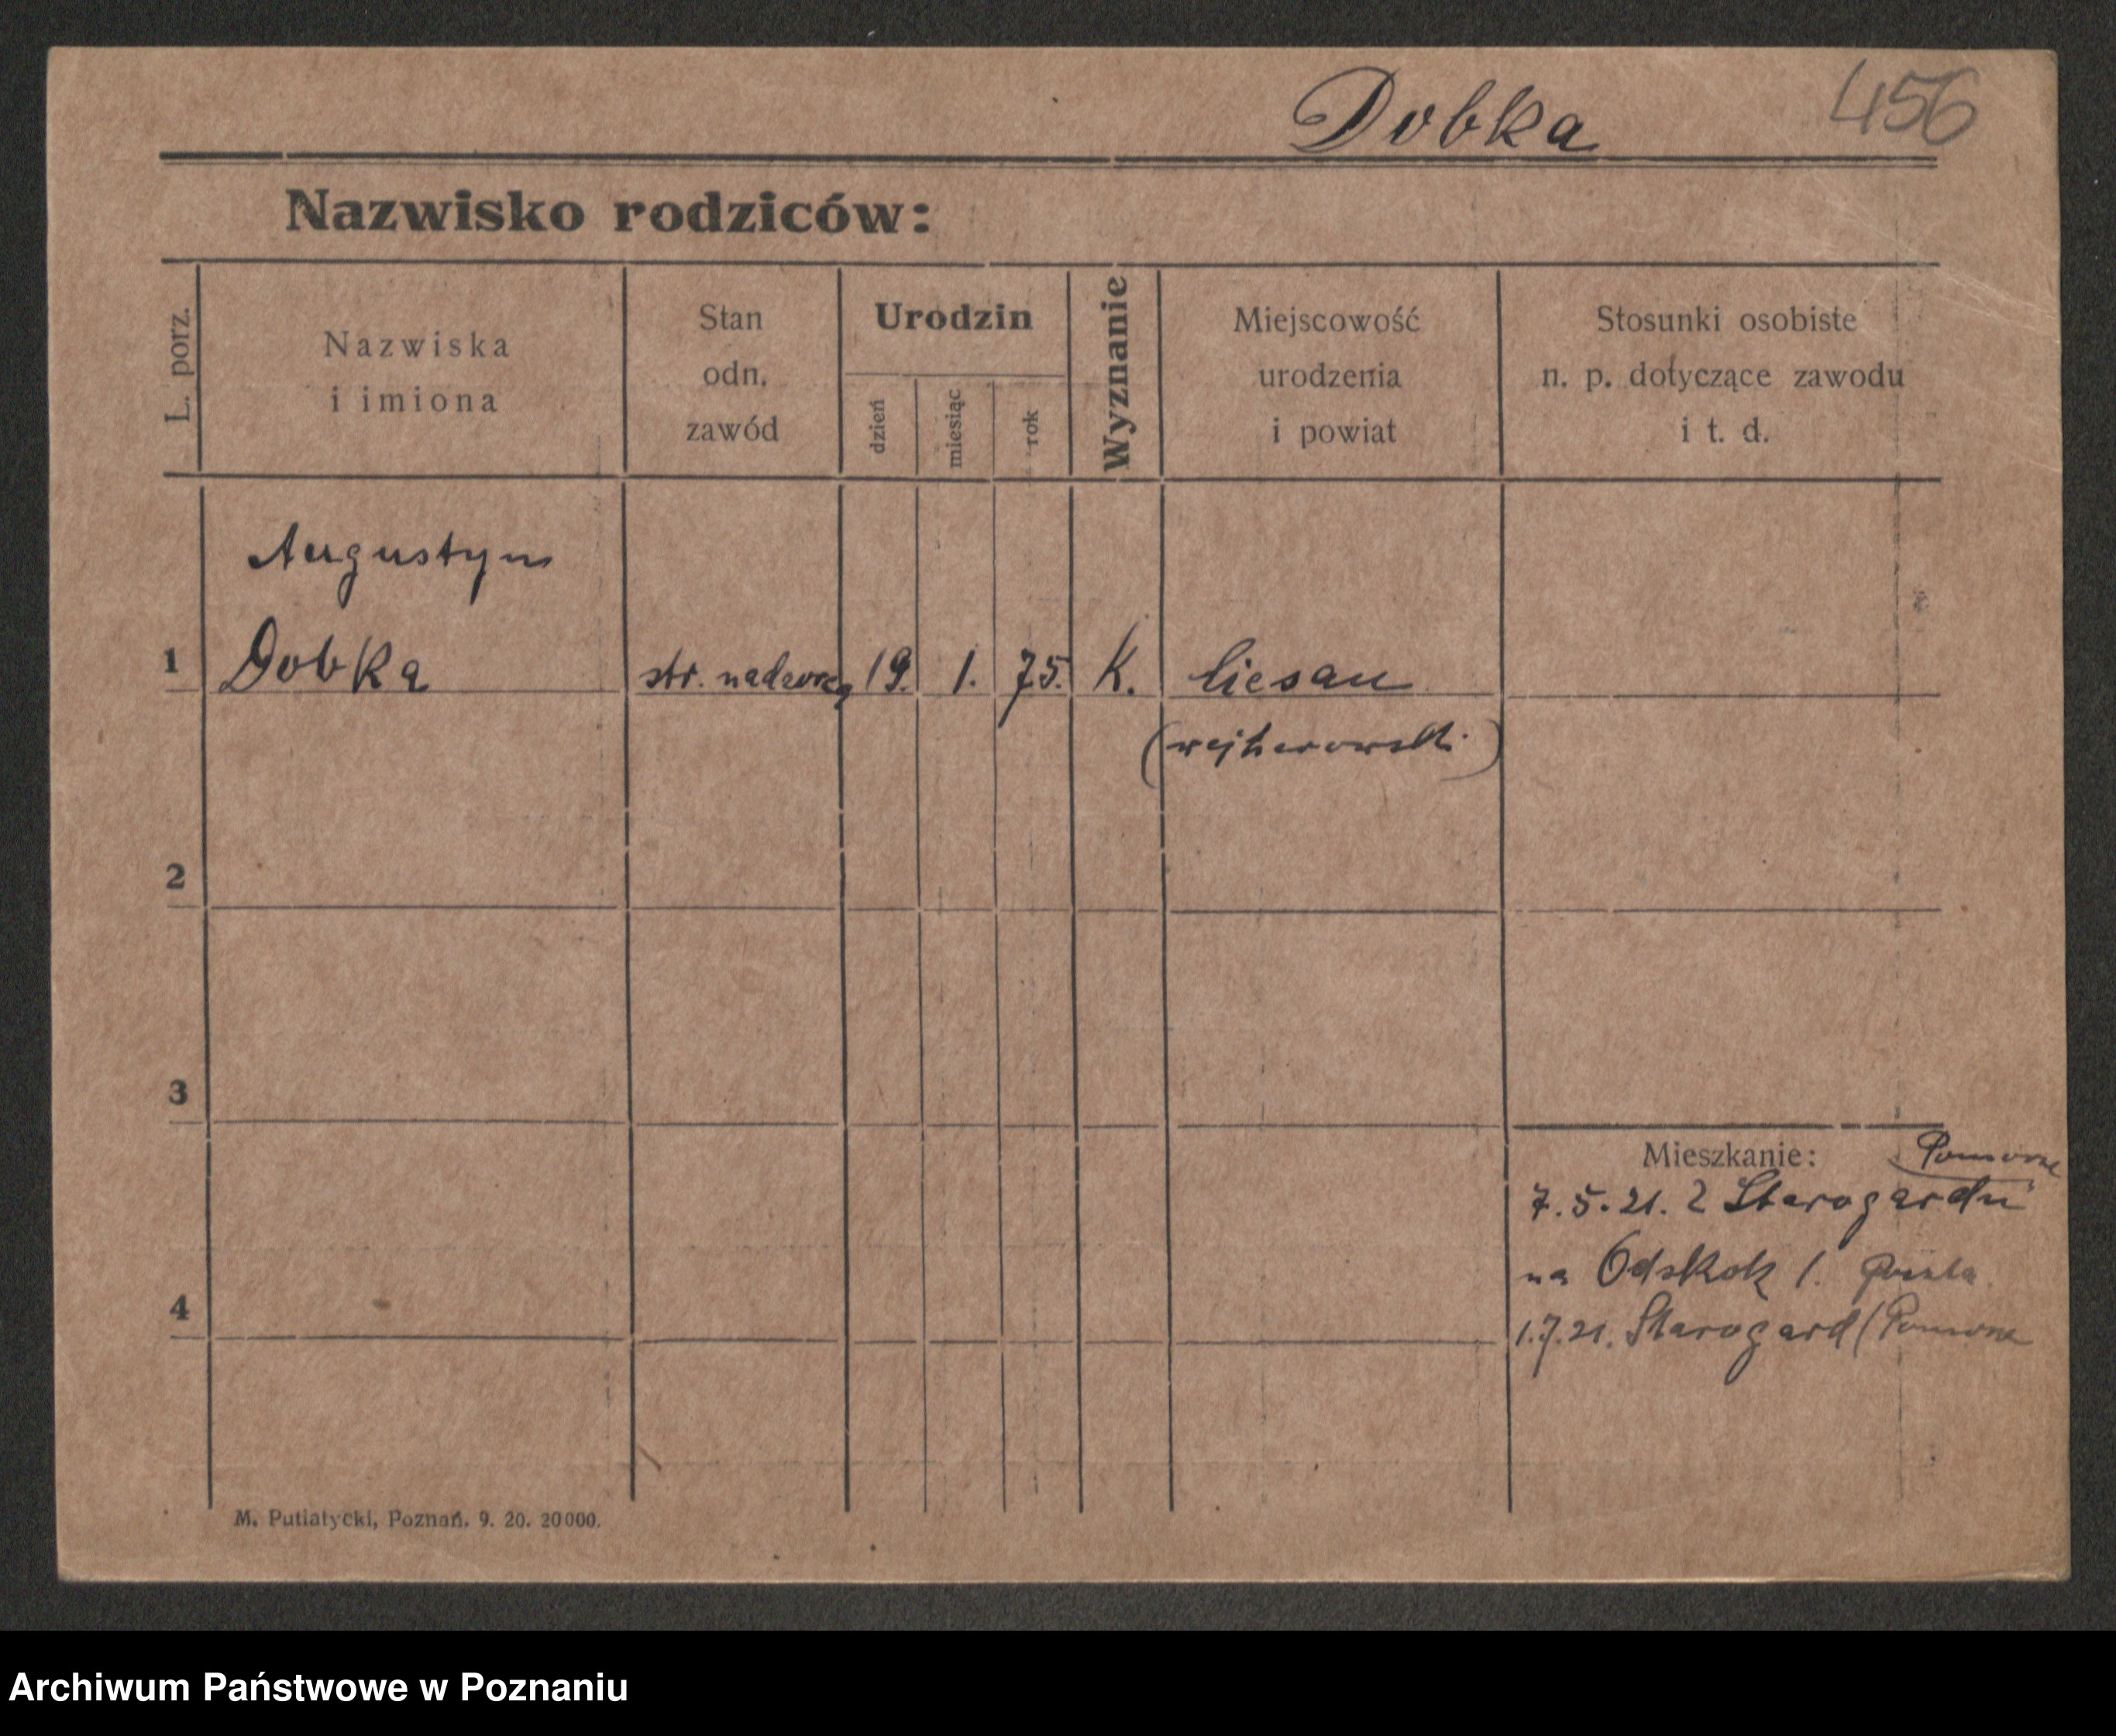 Dobka 456
Nazwisko rodziców:
L. porz.
Nazwiska
i imiona
Stan
odn.
zawód
Urodzin
dzień
miesiąc
rok
Wyznanie
Miejscowość
urodzenia
i powiat
Stosunki osobiste
n. p. dotyczące zawodu
i t. d.
Augustyn
1 Dobka str. 19. 1. 75. K. Liesau
(wejherowski)
2
3
Mieszkanie: Pomorze
7.5.21. Z Starogardu
na Odskok 1.
4
1.7.21. Starogard (Pomorze
M. Putiatycki, Poznań. 9. 20. 20000.
Archiwum Państwowe w Poznaniu